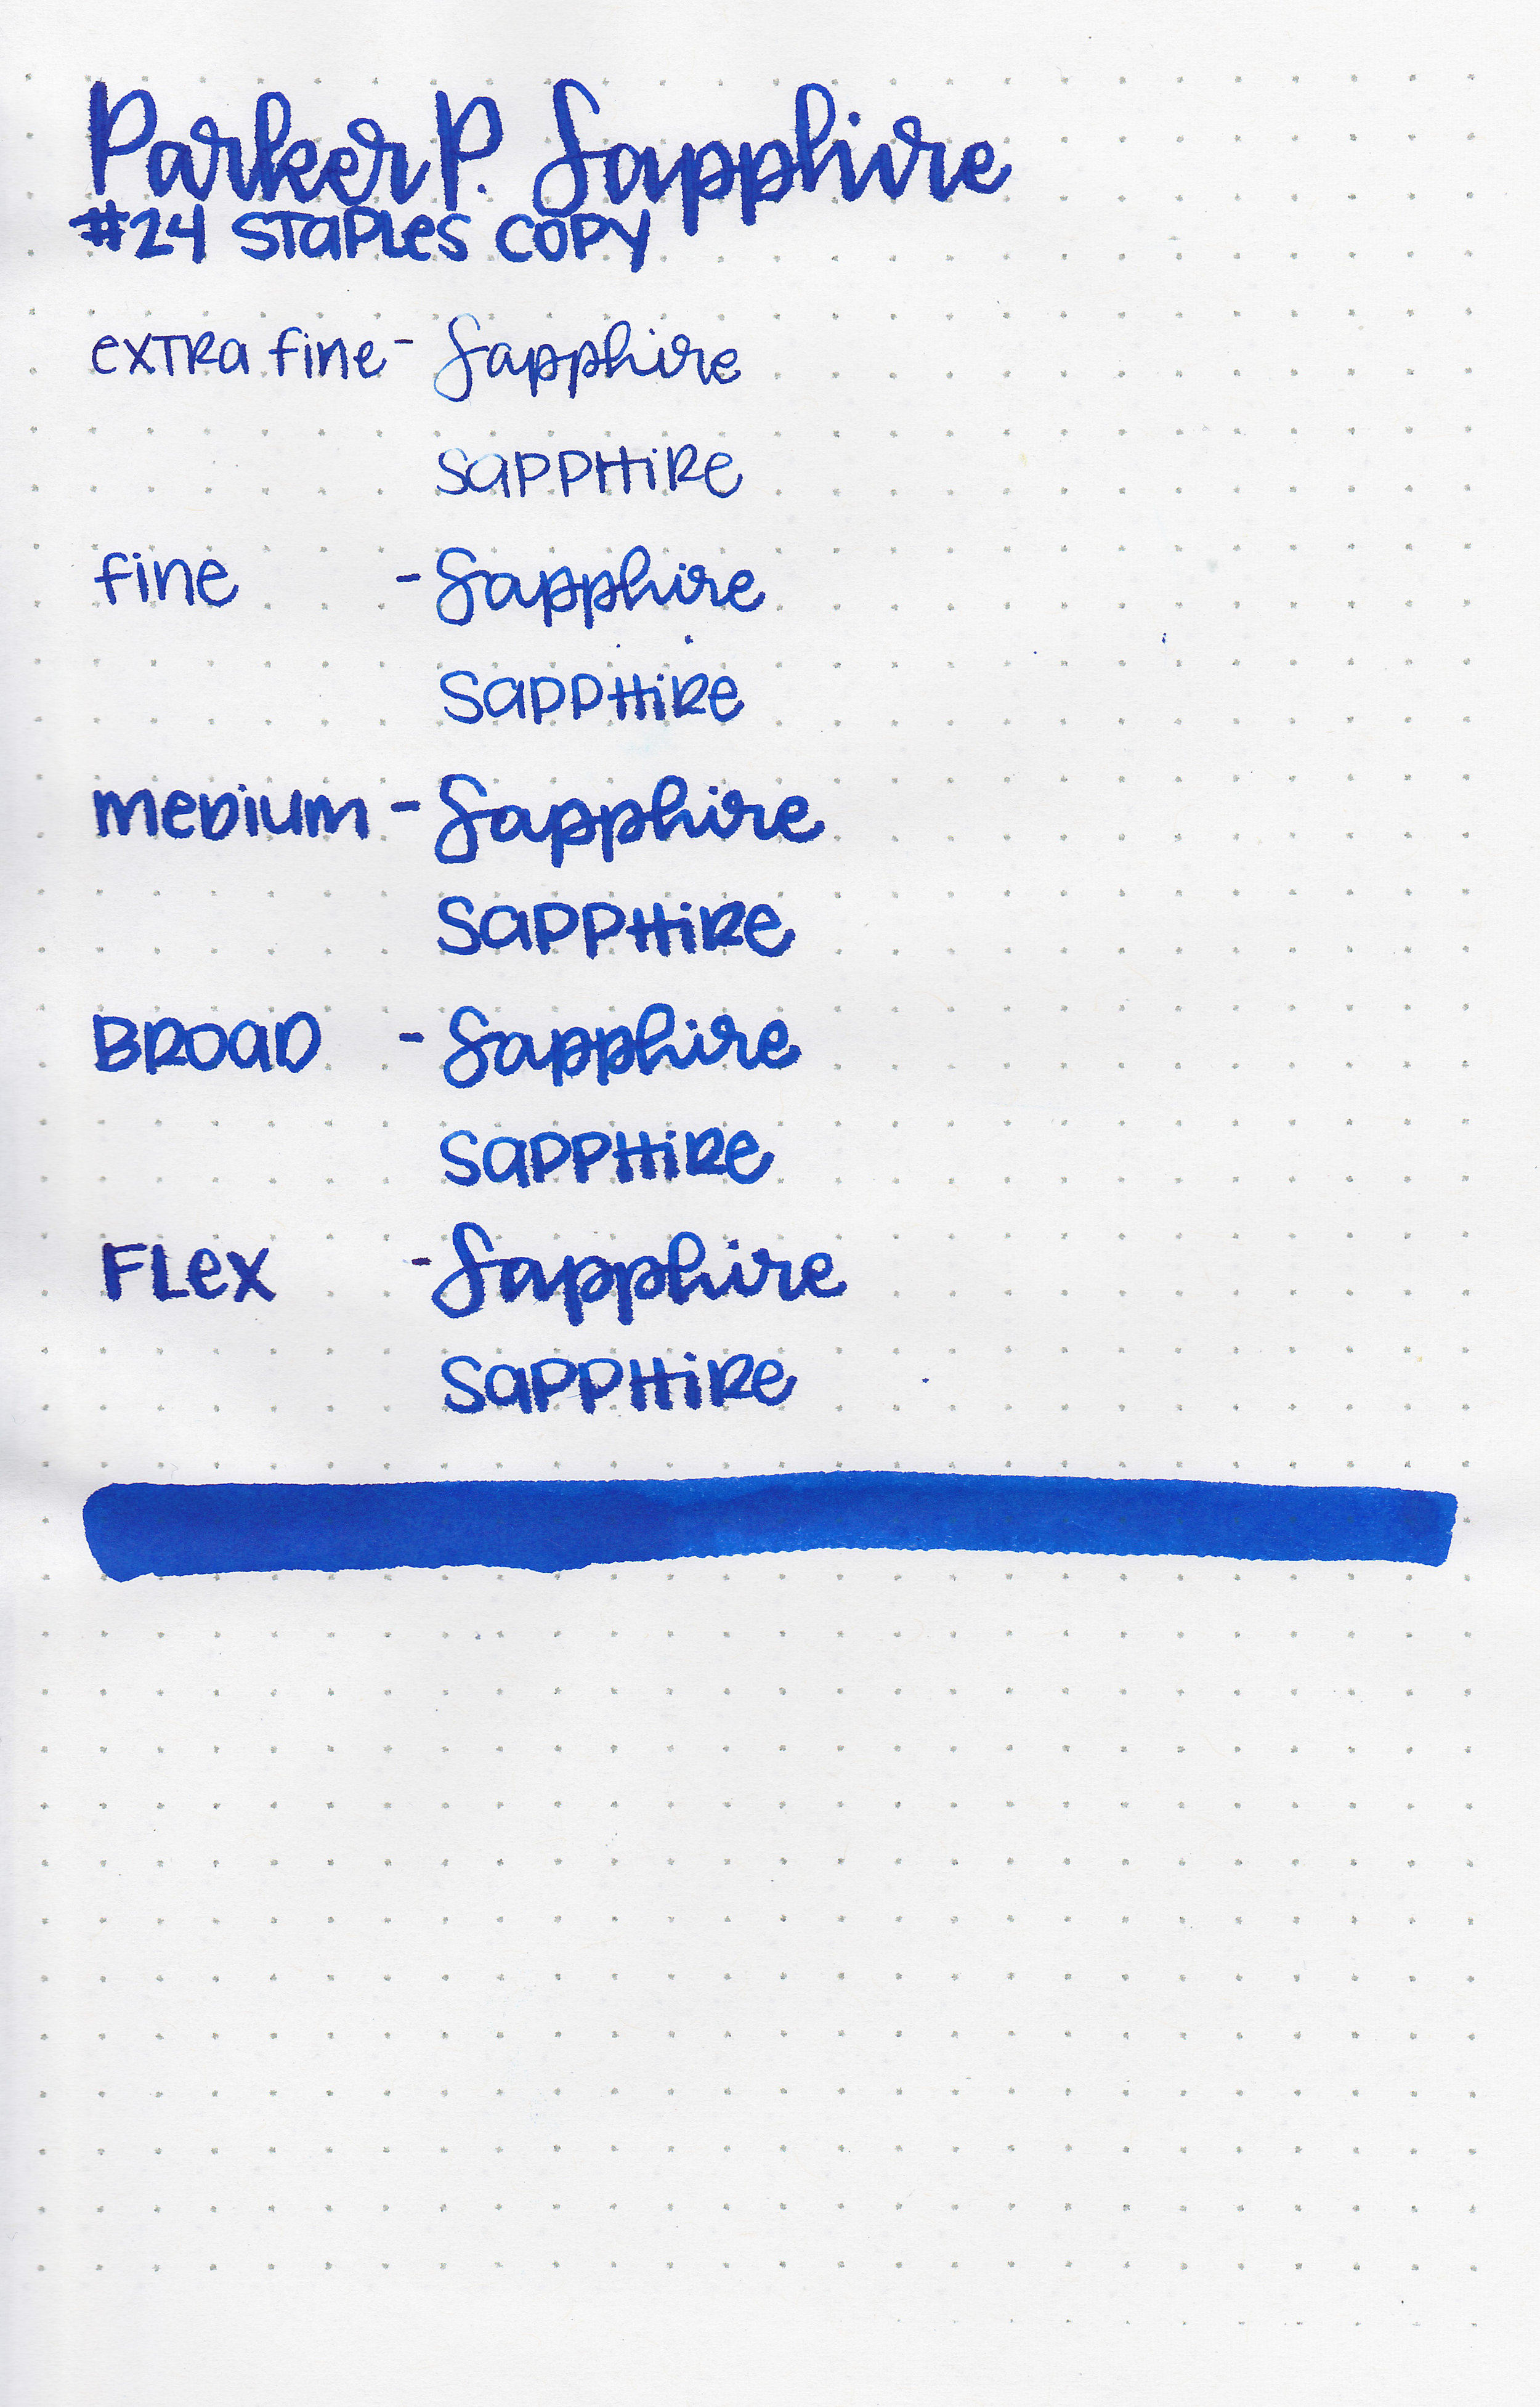 Parker P. Sapphire
#24 STaPLes COPY
exTRa fine - Sapphire
SaPPHiRe
fine - Sapphire
SaPPHiRe
meDium - Sapphire
SaPPHiRe
BROaD - Sapphire
SaPPHiRe
FLex - Sapphire
SaPPHiRe